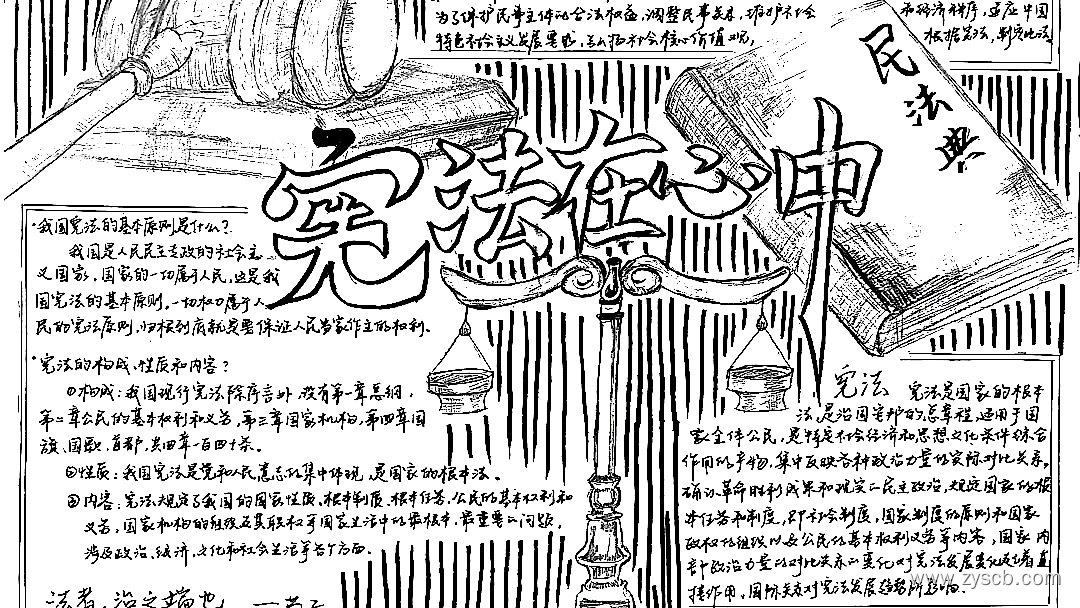 为了保护民事主体的合法权益,调整民事关系,维护社会
和经济秩序,适应中国
特色社会主义发展要求,弘扬社会核心价值观,
根据宪法,制定此法
民法典
宪法在心中
·我国宪法的基本原则是什么?
我国是人民民主专政的社会主
义国家,国家的一切属于人民,这是我
国宪法的基本原则。一切权力属于人
民的宪法原则,归根到底就是要保证人民当家作主的权利。
·宪法的构成、性质和内容?
①构成:我国现行宪法除序言外,设有第一章总纲,
第二章公民的基本权利和义务,第三章国家机构,第四章国
旗、国歌、首都,共四章一百四十条。
②性质:我国宪法是党和人民意志的集中体现,是国家的根本法。
③内容:宪法规定了我国的国家性质、根本制度、根本任务、公民的基本权利和
义务,国家机构的组织及其职权等国家生活中的最根本、最重要的问题,
涉及政治、经济、文化和社会生活等各个方面。
法者,治之端也
宪法 宪法是国家的根本
法,是治国安邦的总章程,适用于国
家全体公民,是特定社会经济和思想文化条件综合
作用的产物,集中反映各种政治力量的实际对比关系,
确认革命胜利成果和现实的民主政治,规定国家的根
本任务和制度,即社会制度,国家制度的原则和国家
政权的组织以及公民的基本权利义务等内容,国家内
部政治力量的对比关系的变化对宪法发展变化起着直
接作用,国际关系对宪法发展趋势所影响。
www.zyscb.com